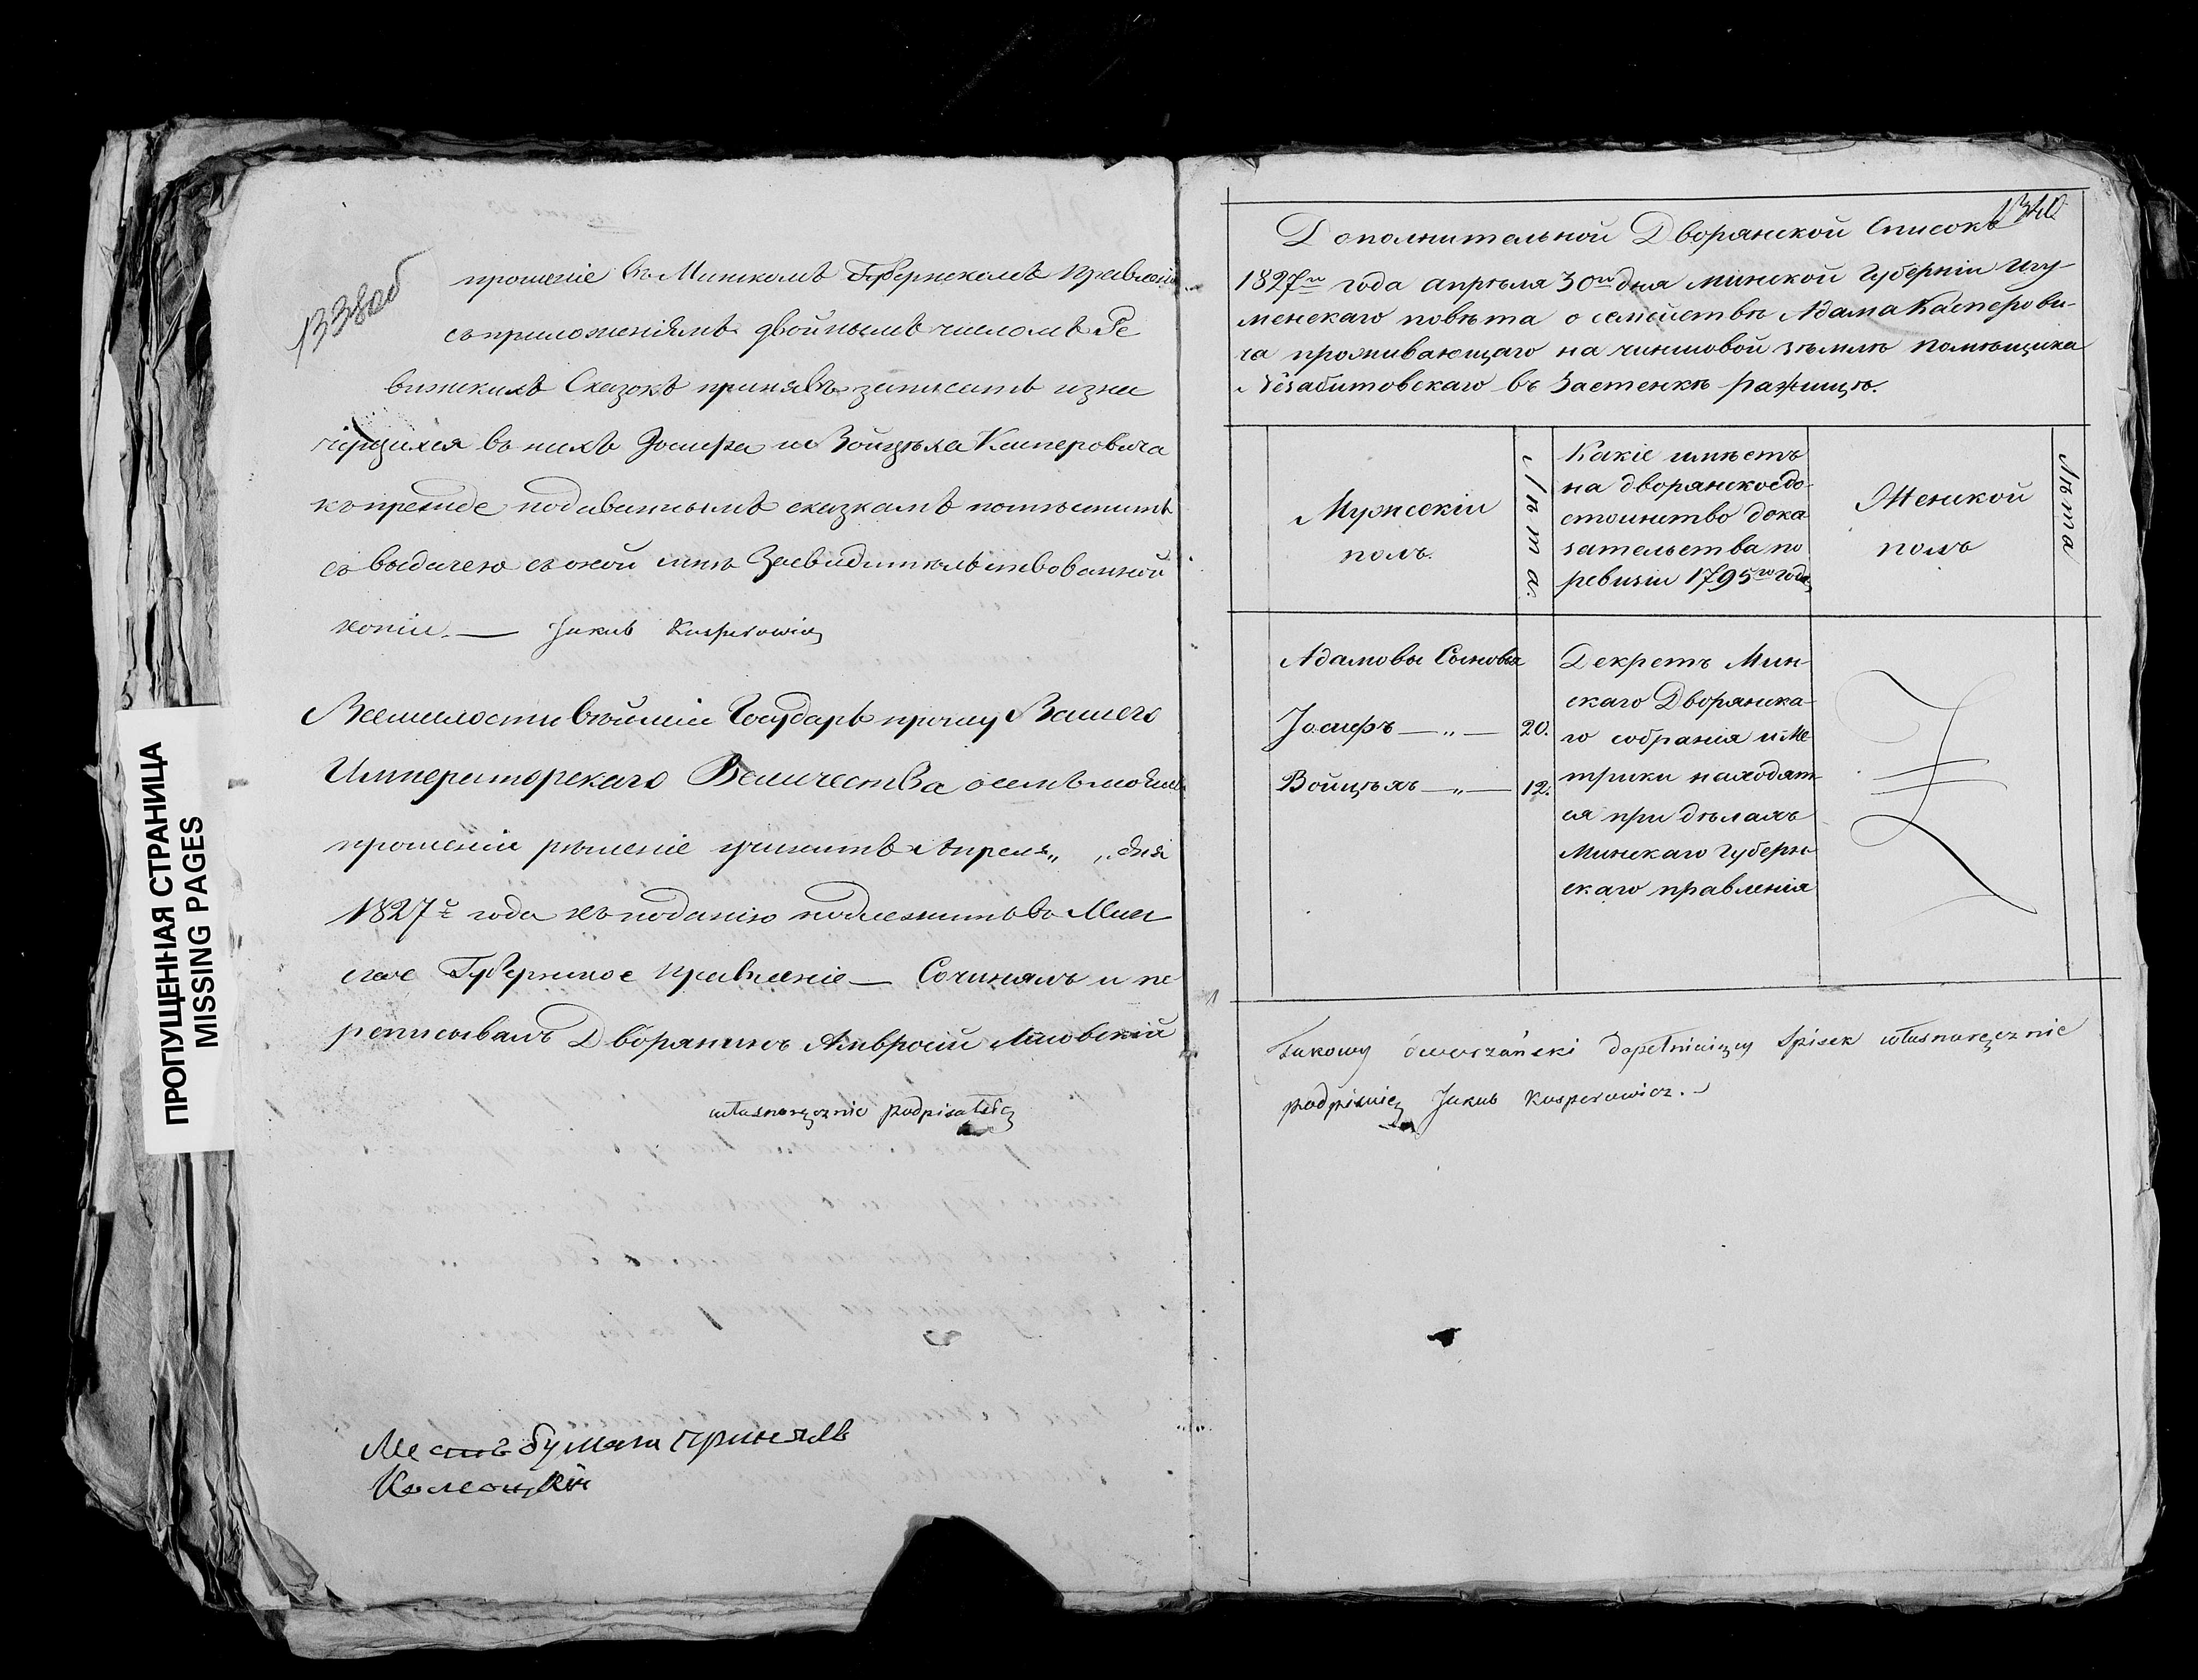 ПРОПУЩЕННАЯ СТРАНИЦА
MISSING PAGES
1338об
прошеніе въ Минскомъ Губернскомъ Правленіи
съ приложеніямъ двойнымъ числомъ Ре
визскихъ Сказокъ принявъ записать изна
чущихся въ нихъ Іосифа и Войцѣха Касперовича
къ прежде подаваннымъ сказкамъ помѣстить
съ выдачею съ оной мнѣ Засвидѣтельствованной
копіи. — Jakub Kasperowicz
Всемилостивѣйшій Государь прошу Вашего
Императорскаго Величества о семъ моемъ
прошеніи рѣшеніе учинить Апреля „ „ дня
1827 года къ поданію подлежитъ въ Мин
ское Губернское Правленіе — Сочинялъ и пе
реписывалъ Дворянинъ Амвросій
własnoręcznie podpisałsię
бумаги принялъ
1340
Дополнительной Дворянской Списокъ
1827го года апрѣля 30го дня минской губерніи Игу-
менскаго повѣта о семействѣ Адама Касперови-
ча проживающаго на чиншовой зѣмлѣ помѣщика
Незабитовскаго въ Застенкѣ
Мужескій
полъ.
Лѣта.
Какіе имѣетъ
на дворянское до-
стоинство дока
зательства по
ревизіи 1795го года
Женской
полъ
Лѣта
Адамовы Сыновья
Іосифъ — „ — 20.
Войцѣхъ — „ — 12.
Декретъ Мин-
скаго Дворянска-
го собранія и ме
трики находят-
ся при дѣлахъ
Минскаго Губерн-
скаго правленія
Takowy dworzański dopełniający Spisek własnoręcznie
podpisuię Jakub Kasperowicz. –